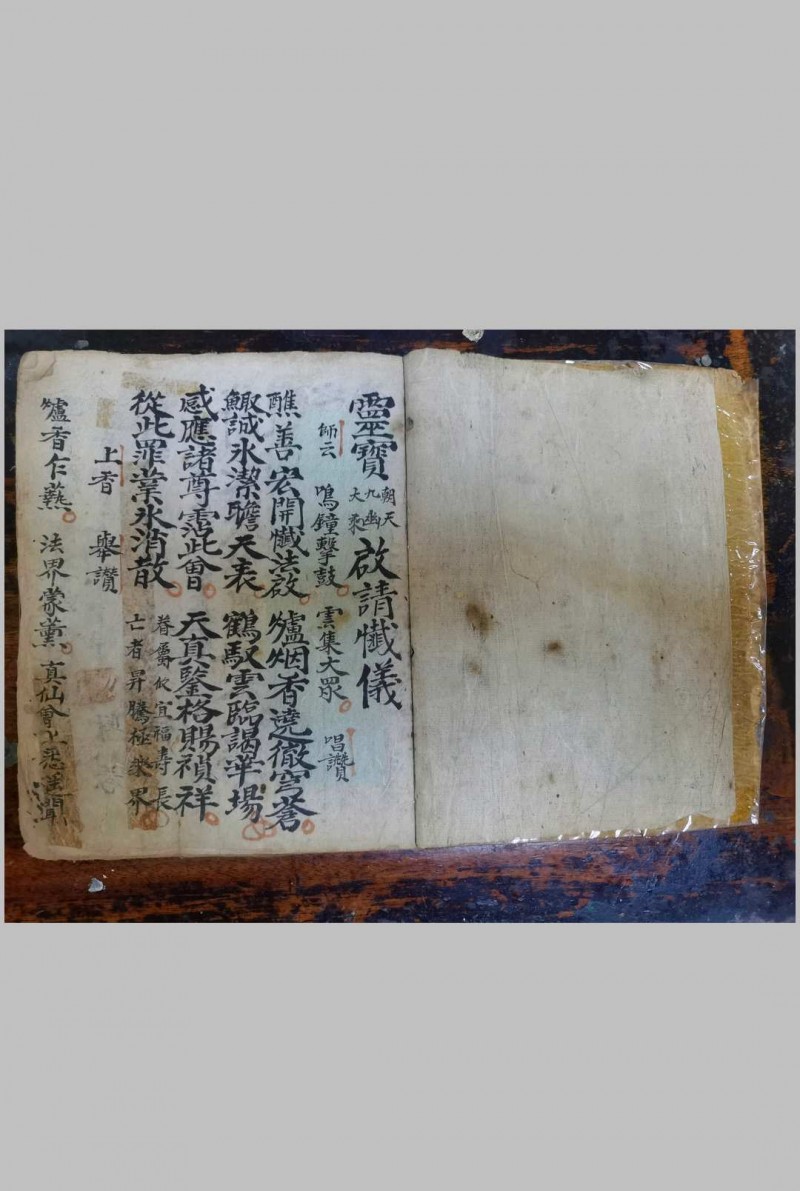 靈寶朝天九幽大乘啟請懺儀
師云 鳴鐘擊鼓 雲集大眾 唱讚
醮善宏開懺法啟 爐烟香遶徹穹蒼
鯫誠氷潔瞻天表 鶴馭雲臨謁平場
感應諸尊臨此會 天真鑒格賜禎祥
從此罪業氷消散 眷屬欽宜福壽長 亡者昇騰極樂界
上香 舉讚
爐香乍爇 法界蒙薰 真仙會上悉遙聞